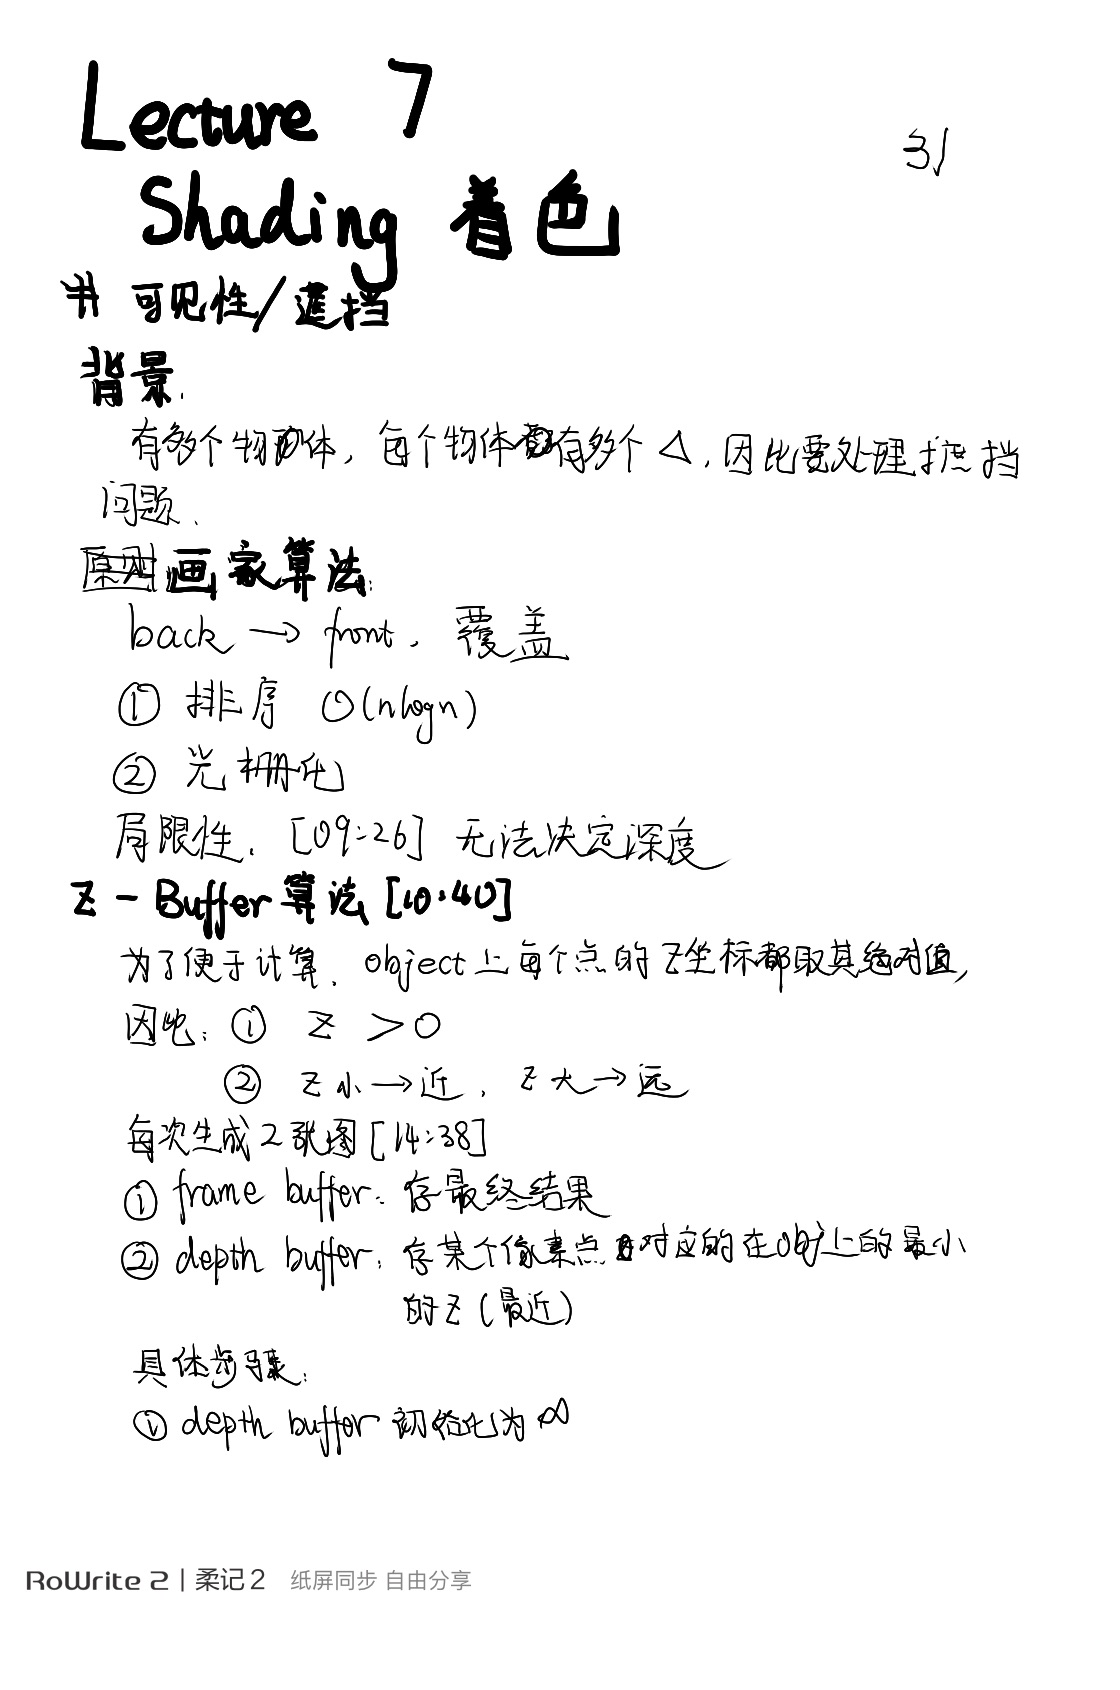 Lecture 7
31
Shading 着色
# 可见性/遮挡
背景:
有多个物体, 每个物体都有多个 △, 因此要处理遮挡
问题.
画家算法:
back → front, 覆盖
① 排序 O(nlogn)
② 光栅化
局限性: [09:26] 无法决定深度
Z-Buffer算法[10:40]
为了便于计算, object上每个点的Z坐标都取其绝对值,
因此: ① Z > 0
② Z小→近, Z大→远
每次生成2张图[14:38]
① frame buffer: 存最终结果
② depth buffer: 存某个像素点对应的在obj上的最小
的Z(最近)
具体步骤:
① depth buffer 初始化为∞
RoWrite 2 | 柔记2 纸屏同步 自由分享